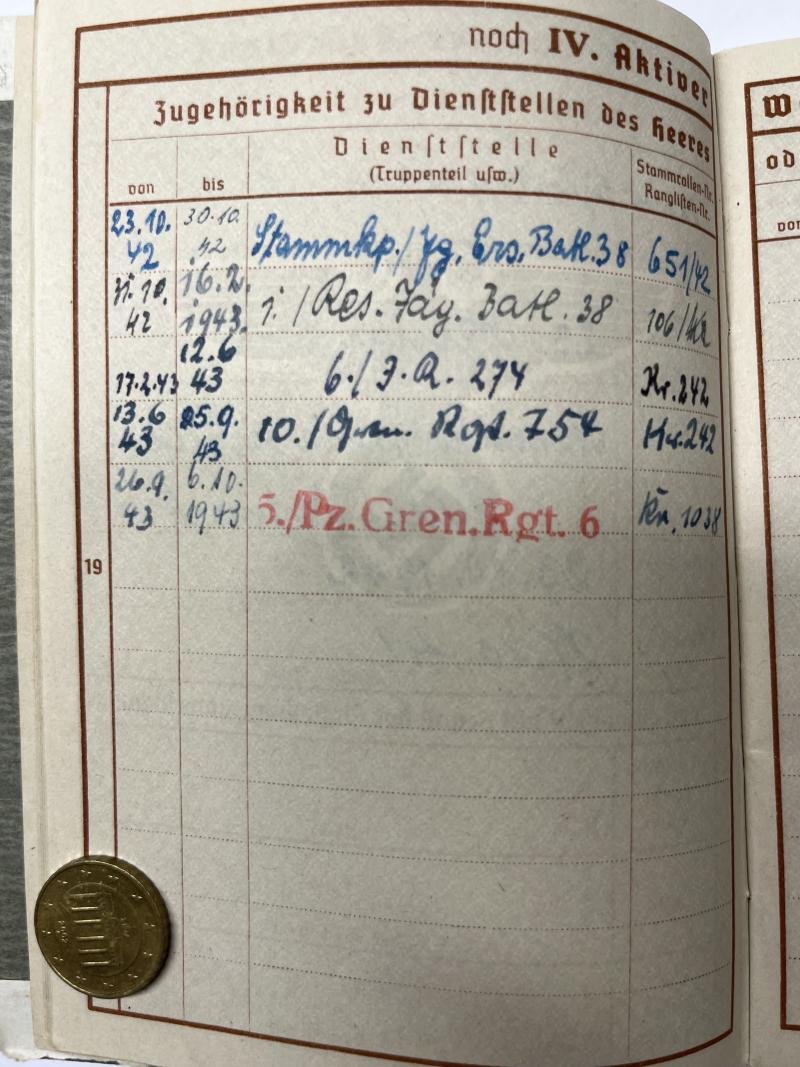 noch IV. Aktiver
Zugehörigkeit zu Dienststellen des Heeres
von
bis
Dienststelle
(Truppenteil usw.)
Stammrollen-Nr.
Ranglisten-Nr.
23.10. 42
30.10. 42
Stammkp./Jg. Ers. Batl. 38
651/42
31.10. 42
16.2. 1943.
1./Res. Jäg. Batl. 38
106/42
17.2.43
12.6 43
6./J.R. 274
Kr. 242
13.6 43
25.9. 43
10./Gren. Rgt. 754
Kr. 242
26.9. 43
6.10. 1943
5./Pz.Gren.Rgt. 6
Kr. 1038
19
W
od
von